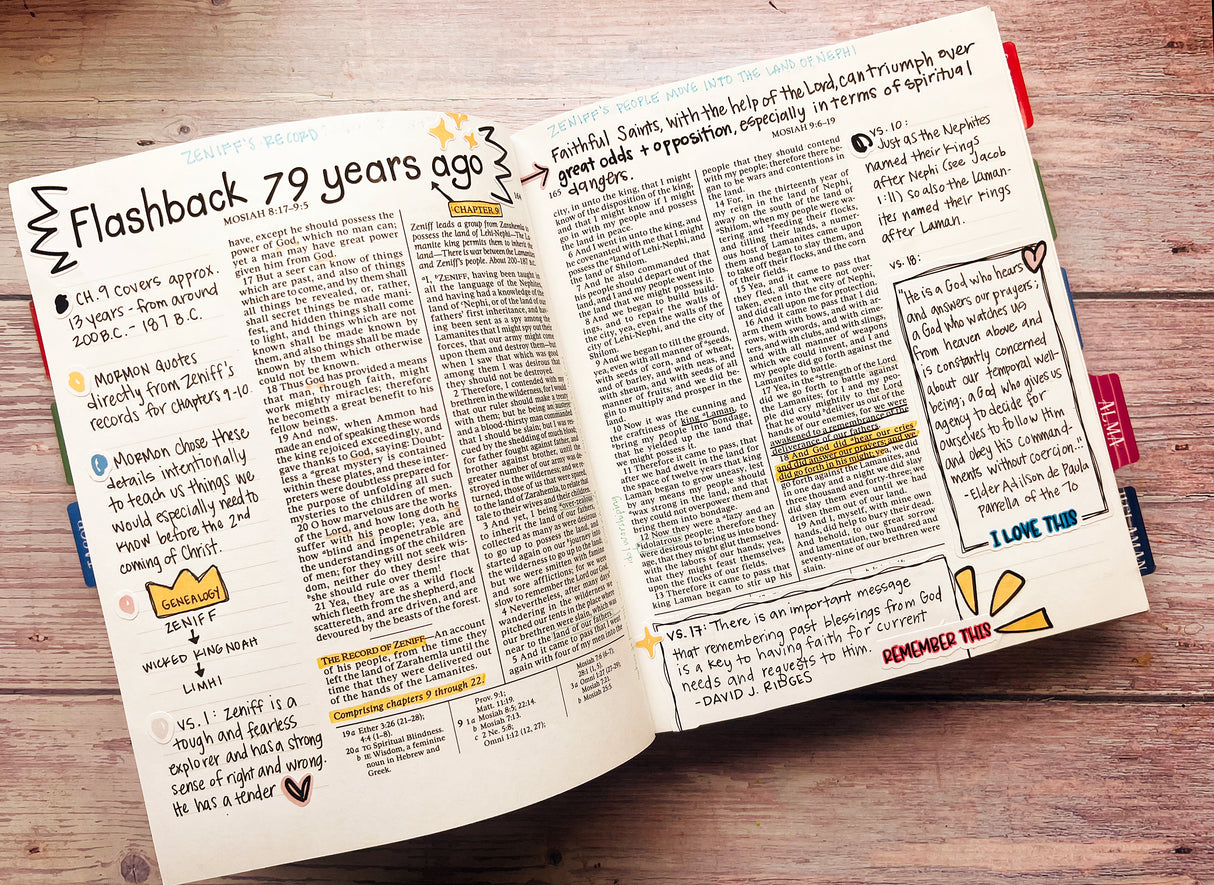 ZENIFF'S RECORD
Flashback 79 years ago
MOSIAH 8:17–9:5
CH. 9 covers approx.
13 years - from around
200 B.C. - 187 B.C.
Mormon Quotes
directly from Zeniff's
records for chapters 9-10.
Mormon chose these
details intentionally
to teach us things we
would especially need to
know before the 2nd
coming of Christ.
GENEALOGY
ZENIFF
WICKED KING NOAH
LIMHI
VS. 1: Zeniff is a
tough and fearless
explorer and has a strong
sense of right and wrong.
He has a tender
have, except he should possess the
power of God, which no man can;
yet a man may have great power
given him from God.
17 But a seer can know of things
which are past, and also of things
which are to come, and by them shall
all things be revealed, or, rather,
shall secret things be made mani-
fest, and hidden things shall come
to light, and things which are not
known shall be made known by
them, and also things shall be made
known by them which otherwise
could not be known.
18 Thus God has provided a means
that man, through faith, might
work mighty miracles; therefore
he becometh a great benefit to his
fellow beings.
19 And now, when Ammon had
made an end of speaking these words
the king rejoiced exceedingly, and
gave thanks to God, saying: Doubt-
less a great mystery is contained
within these plates, and these inter-
preters were doubtless prepared for
the purpose of unfolding all such
mysteries to the children of men.
20 O how marvelous are the works
of the Lord, and how long doth he
suffer with his people; yea, and
how blind and impenetrable are
the understandings of the children
of men; for they will not seek wis-
dom, neither do they desire that
she should rule over them!
21 Yea, they are as a wild flock
which fleeth from the shepherd, and
scattereth, and are driven, and are
devoured by the beasts of the forest.
THE RECORD OF ZENIFF—An account
of his people, from the time they
left the land of Zarahemla until the
time that they were delivered out
of the hands of the Lamanites.
Comprising chapters 9 through 22.
CHAPTER 9
Zeniff leads a group from Zarahemla to
possess the land of Lehi-Nephi—The La-
manite king permits them to inherit the
land—There is war between the Lamanites
and Zeniff's people. About 200–187 B.C.
I, ZENIFF, having been taught in
all the language of the Nephites,
and having had a knowledge of the
land of Nephi, or of the land of our
fathers' first inheritance, and having
been sent as a spy among the
Lamanites that I might spy out their
forces, that our army might come
upon them and destroy them—but
when I saw that which was good
among them I was desirous that
they should not be destroyed.
2 Therefore, I contended with my
brethren in the wilderness, for I would
that our ruler should make a treaty
with them; but he being an austere
and a blood-thirsty man commanded
that I should be slain; but I was res-
cued by the shedding of much blood;
for father fought against father, and
brother against brother, until the
greater number of our army was de-
stroyed in the wilderness; and we re-
turned, those of us that were spared,
to the land of Zarahemla, to relate that
tale to their wives and their children.
3 And yet, I being over-zealous
to inherit the land of our fathers,
collected as many as were desirous
to go up to possess the land, and
started again on our journey into
the wilderness to go up to the land;
but we were smitten with famine
and sore afflictions; for we were
slow to remember the Lord our God.
4 Nevertheless, after many days'
wandering in the wilderness we
pitched our tents in the place where
our brethren were slain, which was
near to the land of our fathers.
5 And it came to pass that I went
again with four of my men into the
19a Ether 3:26 (21–28);
4:4 (1–8).
20a TG Spiritual Blindness.
b IE Wisdom, a feminine
noun in Hebrew and
Greek.
Prov. 9:1;
Matt. 11:19.
9 1a Mosiah 8:5; 22:14.
b Mosiah 7:13.
c 2 Ne. 5:8;
Omni 1:12 (12, 27);
Mosiah 7:21.
b Mosiah 25:5.
ZENIFF'S PEOPLE MOVE INTO THE LAND OF NEPHI
Faithful Saints, with the help of the Lord, can triumph over
great odds + opposition, especially in terms of spiritual
dangers.
165
MOSIAH 9:6–19
city, in unto the king, that I might
know of the disposition of the king,
and that I might know if I might
go in with my people and possess
the land in peace.
6 And I went in unto the king, and
he covenanted with me that I might
possess the land of Lehi-Nephi, and
the land of Shilom.
7 And he also commanded that
his people should depart out of the
land, and I and my people went into
the land that we might possess it.
8 And we began to build build-
ings, and to repair the walls of
the city, yea, even the walls of the
city of Lehi-Nephi, and the city of
Shilom.
9 And we began to till the ground,
yea, even with all manner of seeds,
with seeds of corn, and of wheat,
and of barley, and with neas, and
with sheum, and with seeds of all
manner of fruits; and we did be-
gin to multiply and prosper in the
land.
10 Now it was the cunning and
the craftiness of king Laman, to
bring my people into bondage,
that he yielded up the land that
we might possess it.
11 Therefore it came to pass, that
after we had dwelt in the land for
the space of twelve years that king
Laman began to grow uneasy, lest
by any means my people should
wax strong in the land, and that
they could not overpower them and
bring them into bondage.
12 Now they were a lazy and an
idolatrous people; therefore they
were desirous to bring us into bond-
age, that they might glut themselves
with the labors of our hands; yea,
that they might feast themselves
upon the flocks of our fields.
13 Therefore it came to pass that
king Laman began to stir up his
people that they should contend
with my people; therefore there be-
gan to be wars and contentions in
the land.
14 For, in the thirteenth year of
my reign in the land of Nephi,
away on the south of the land of
Shilom, when my people were wa-
tering and feeding their flocks,
and tilling their lands, a numer-
ous host of Lamanites came upon
them and began to slay them, and
to take off their flocks, and the corn
of their fields.
15 Yea, and it came to pass that
they fled, all that were not over-
taken, even into the city of Nephi,
and did call upon me for protection.
16 And it came to pass that I did
arm them with bows, and with ar-
rows, with swords, and with cim-
eters, and with clubs, and with slings,
and with all manner of weapons
which we could invent, and I and
my people did go forth against the
Lamanites to battle.
17 Yea, in the strength of the Lord
did we go forth to battle against
the Lamanites; for I and my peo-
ple did cry mightily to the Lord
that he would deliver us out of the
hands of our enemies, for we were
awakened to a remembrance of the
deliverance of our fathers.
18 And God did hear our cries
and did answer our prayers; and we
did go forth in his might; yea, we did
go forth against the Lamanites, and
in one day and a night we did slay
three thousand and forty-three; we
did slay them even until we had
driven them out of our land.
19 And I, myself, with mine own
hands, did help to bury their dead.
And behold, to our great sorrow
and lamentation, two hundred and
seventy-nine of our brethren were
slain.
VS. 10:
Just as the Nephites
named their kings
after Nephi (see Jacob
1:11) so also the Laman-
ites named their kings
after Laman.
VS. 18:
"He is a God who hears
and answers our prayers;
a God who watches us
from heaven above and
is constantly concerned
about our temporal well-
being; a God who gives us
agency to decide for
ourselves to follow Him
and obey His command-
ments without coercion."
-Elder Adilson de Paula
Parrella of the 70
I LOVE THIS
VS. 17: There is an important message
that remembering past blessings from God
is a key to having faith for current
needs and requests to Him.
-DAVID J. RIDGES
REMEMBER THIS
ALMA
HELAMAN